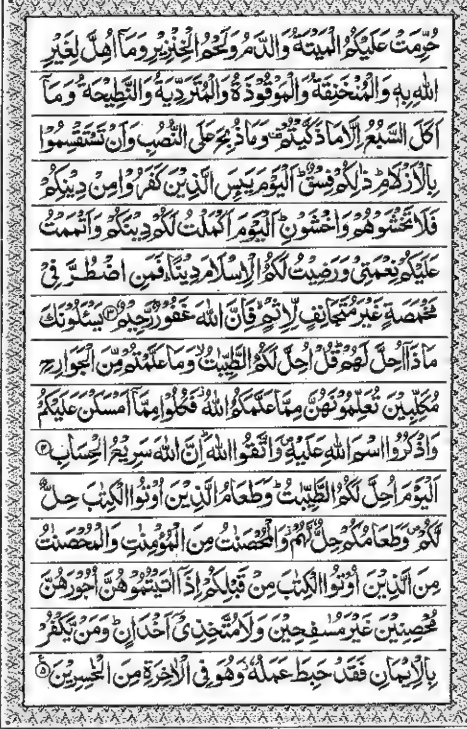 حُرِّمَتْ عَلَيْكُمُ الْمَيْتَةُ وَالدَّمُ وَلَحْمُ الْخِنْزِيْرِ وَمَاۤ اُهِلَّ لِغَيْرِ
اللّٰهِ بِهٖ وَالْمُنْخَنِقَةُ وَالْمَوْقُوْذَةُ وَالْمُتَرَدِّيَةُ وَالنَّطِيْحَةُ وَمَاۤ
اَكَلَ السَّبُعُ اِلَّا مَا ذَكَّيْتُمْ وَمَا ذُبِحَ عَلَى النُّصُبِ وَاَنْ تَسْتَقْسِمُوْا
بِالْاَزْلَامِ ذٰلِكُمْ فِسْقٌ اَلْيَوْمَ يَئِسَ الَّذِيْنَ كَفَرُوْا مِنْ دِيْنِكُمْ
فَلَا تَخْشَوْهُمْ وَاخْشَوْنِ اَلْيَوْمَ اَكْمَلْتُ لَكُمْ دِيْنَكُمْ وَاَتْمَمْتُ
عَلَيْكُمْ نِعْمَتِيْ وَرَضِيْتُ لَكُمُ الْاِسْلَامَ دِيْنًا فَمَنِ اضْطُرَّ فِيْ
مَخْمَصَةٍ غَيْرَ مُتَجَانِفٍ لِّاِثْمٍ فَاِنَّ اللّٰهَ غَفُوْرٌ رَّحِيْمٌ ۳ يَسْـَٔلُوْنَكَ
مَاذَاۤ اُحِلَّ لَهُمْ قُلْ اُحِلَّ لَكُمُ الطَّيِّبٰتُ وَمَا عَلَّمْتُمْ مِّنَ الْجَوَارِحِ
مُكَلِّبِيْنَ تُعَلِّمُوْنَهُنَّ مِمَّا عَلَّمَكُمُ اللّٰهُ فَكُلُوْا مِمَّاۤ اَمْسَكْنَ عَلَيْكُمْ
وَاذْكُرُوا اسْمَ اللّٰهِ عَلَيْهِ وَاتَّقُوا اللّٰهَ اِنَّ اللّٰهَ سَرِيْعُ الْحِسَابِ ۴
اَلْيَوْمَ اُحِلَّ لَكُمُ الطَّيِّبٰتُ وَطَعَامُ الَّذِيْنَ اُوْتُوا الْكِتٰبَ حِلٌّ
لَّكُمْ وَطَعَامُكُمْ حِلٌّ لَّهُمْ وَالْمُحْصَنٰتُ مِنَ الْمُؤْمِنٰتِ وَالْمُحْصَنٰتُ
مِنَ الَّذِيْنَ اُوْتُوا الْكِتٰبَ مِنْ قَبْلِكُمْ اِذَاۤ اٰتَيْتُمُوْهُنَّ اُجُوْرَهُنَّ
مُحْصِنِيْنَ غَيْرَ مُسٰفِحِيْنَ وَلَا مُتَّخِذِيْۤ اَخْدَانٍ وَمَنْ يَّكْفُرْ
بِالْاِيْمَانِ فَقَدْ حَبِطَ عَمَلُهٗ وَهُوَ فِي الْاٰخِرَةِ مِنَ الْخٰسِرِيْنَ ۵